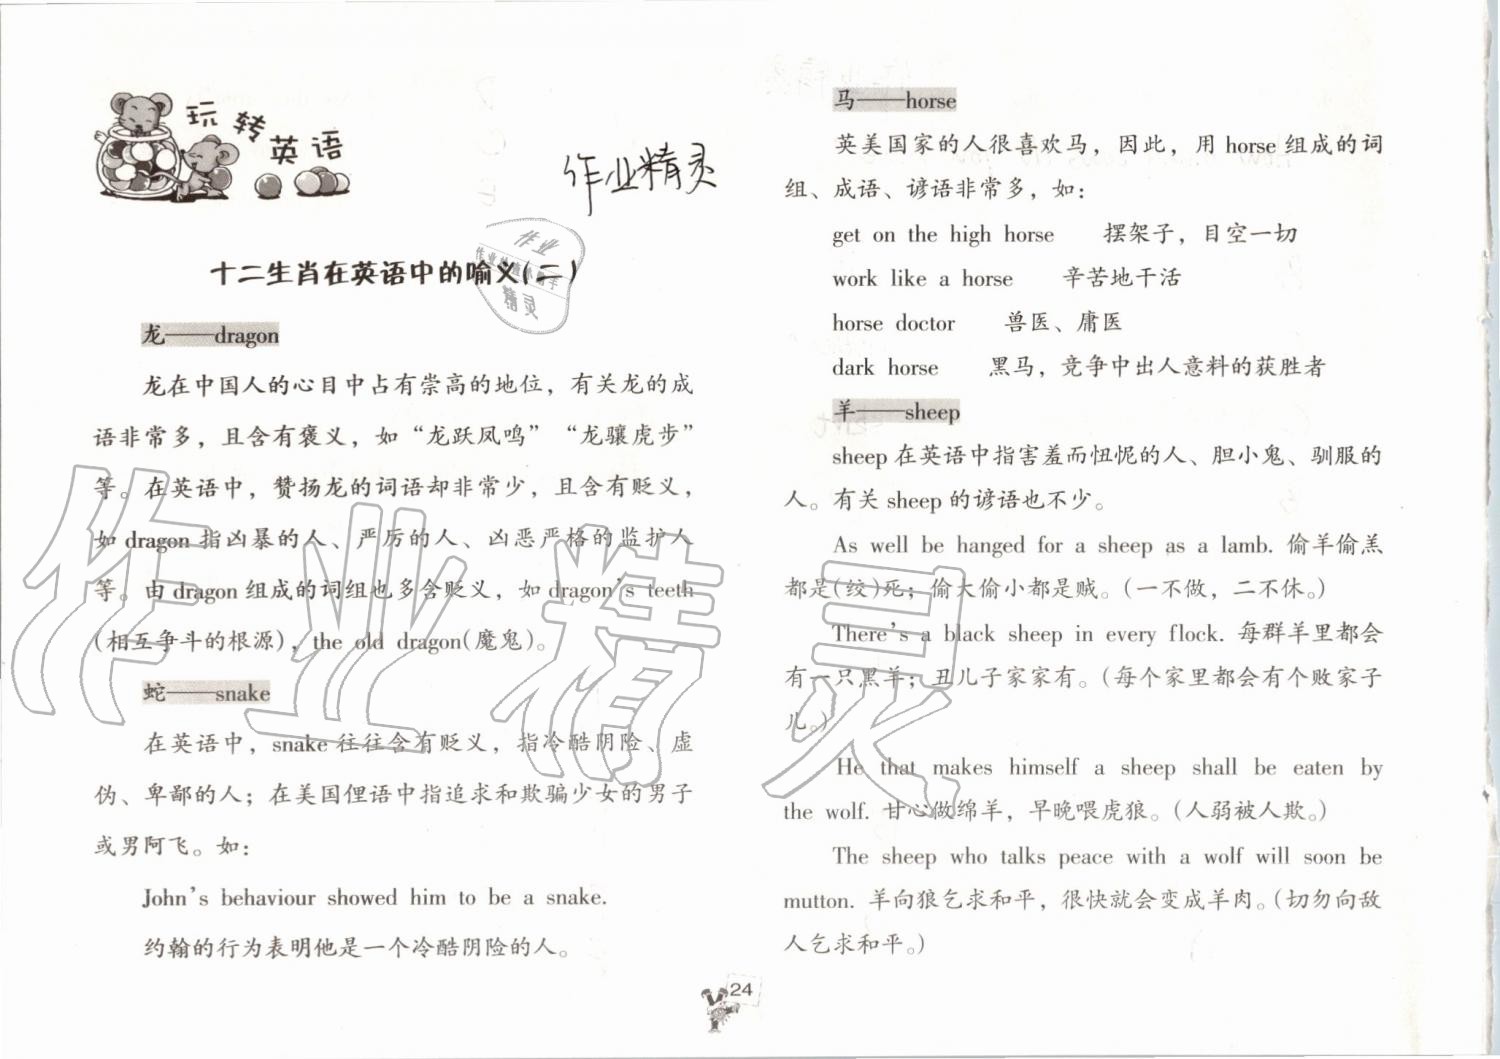 玩转英语
作业精灵
十二生肖在英语中的喻义(二)
龙——dragon
龙在中国人的心目中占有崇高的地位，有关龙的成
语非常多，且含有褒义，如“龙跃凤鸣”“龙骧虎步”
等。在英语中，赞扬龙的词语却非常少，且含有贬义，
如 dragon 指凶暴的人、严厉的人、凶恶严格的监护人
等。由 dragon 组成的词组也多含贬义，如 dragon's teeth
(相互争斗的根源)，the old dragon(魔鬼)。
蛇——snake
在英语中，snake 往往含有贬义，指冷酷阴险、虚
伪、卑鄙的人；在美国俚语中指追求和欺骗少女的男子
或男阿飞。如：
John's behaviour showed him to be a snake.
约翰的行为表明他是一个冷酷阴险的人。
马——horse
英美国家的人很喜欢马，因此，用 horse 组成的词
组、成语、谚语非常多，如：
get on the high horse 摆架子，目空一切
work like a horse 辛苦地干活
horse doctor 兽医、庸医
dark horse 黑马，竞争中出人意料的获胜者
羊——sheep
sheep 在英语中指害羞而忸怩的人、胆小鬼、驯服的
人。有关 sheep 的谚语也不少。
As well be hanged for a sheep as a lamb. 偷羊偷羔
都是(绞)死；偷大偷小都是贼。(一不做，二不休。)
There's a black sheep in every flock. 每群羊里都会
有一只黑羊；丑儿子家家有。(每个家里都会有个败家子
儿。)
He that makes himself a sheep shall be eaten by
the wolf. 甘心做绵羊，早晚喂虎狼。(人弱被人欺。)
The sheep who talks peace with a wolf will soon be
mutton. 羊向狼乞求和平，很快就会变成羊肉。(切勿向敌
人乞求和平。)
24
作业
精灵
作业精灵